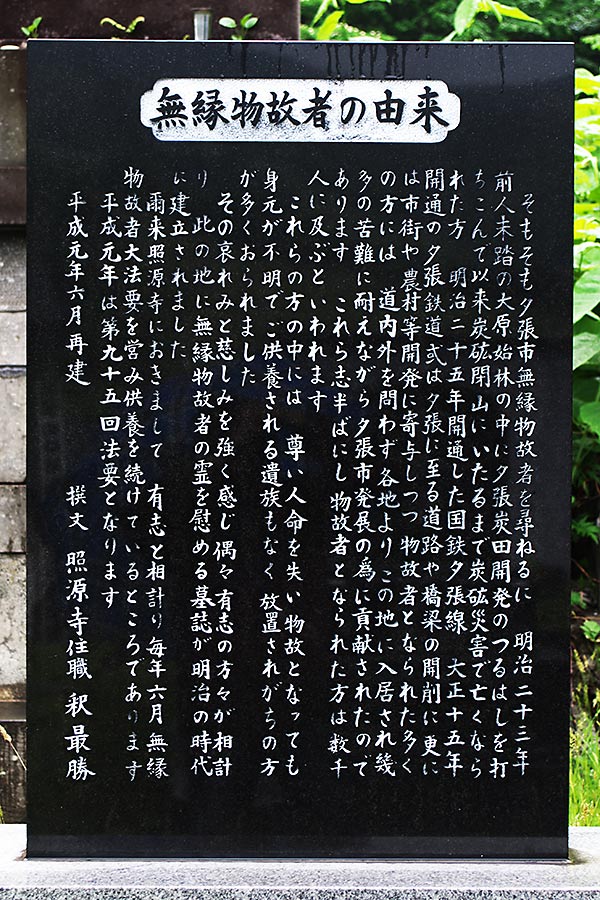 無縁物故者の由来
そもそも夕張市無縁物故者を尋ねるに　明治二十三年
前人未踏の大原始林の中に夕張炭田開発のつるはしを打
ちこんで以来炭砿開山にいたるまで炭砿災害で亡くなら
れた方　明治二十五年開通した国鉄夕張線　大正十五年
開通の夕張鉄道式は夕張に至る道路や橋梁の開削に更に
は市街や農村等開発に寄与しつつ物故者となられた多く
の方には　道内外を問わず各地よりこの地に入居され幾
多の苦難に耐えながら夕張市発展の為に貢献されたので
あります　これら志半ばにし物故者となられた方は数千
人に及ぶといわれます
これらの方の中には　尊い人命を失い物故となっても
身元が不明でご供養される遺族もなく放置されがちの方
が多くおられました
その哀れみと慈しみを強く感じ偶々有志の方々が相計
り　此の地に無縁物故者の霊を慰める墓誌が明治の時代
に建立されました
爾来照源寺におきまして　有志と相計り毎年六月無縁
物故者大法要を営み供養を続けているところであります
平成元年は第九十五回法要となります
平成元年六月再建　撰文　照源寺住職　釈最勝